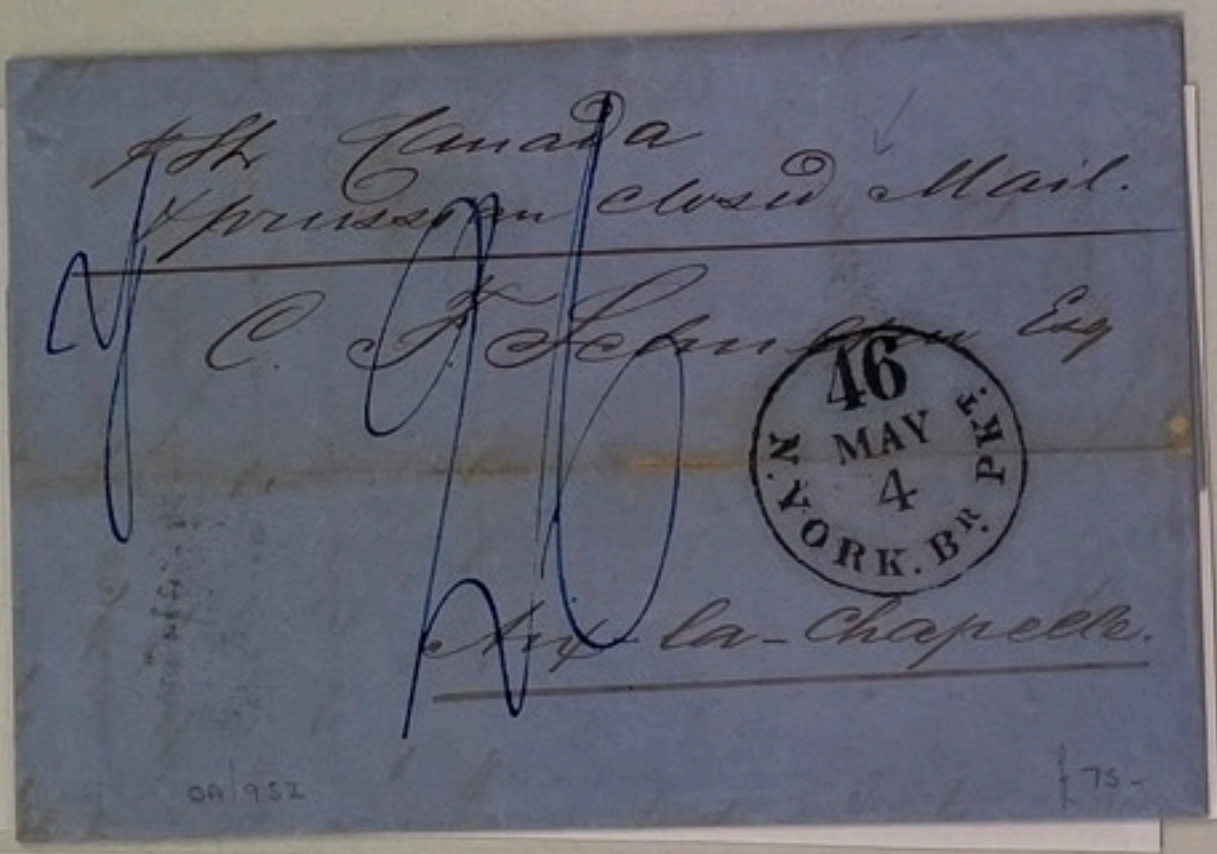 pr Str Canada
pr prussian closed Mail.
C. F. Esq
46
MAY
4
N. YORK. Br. PKT.
Aix-la-Chapelle.
OA/952
£75-